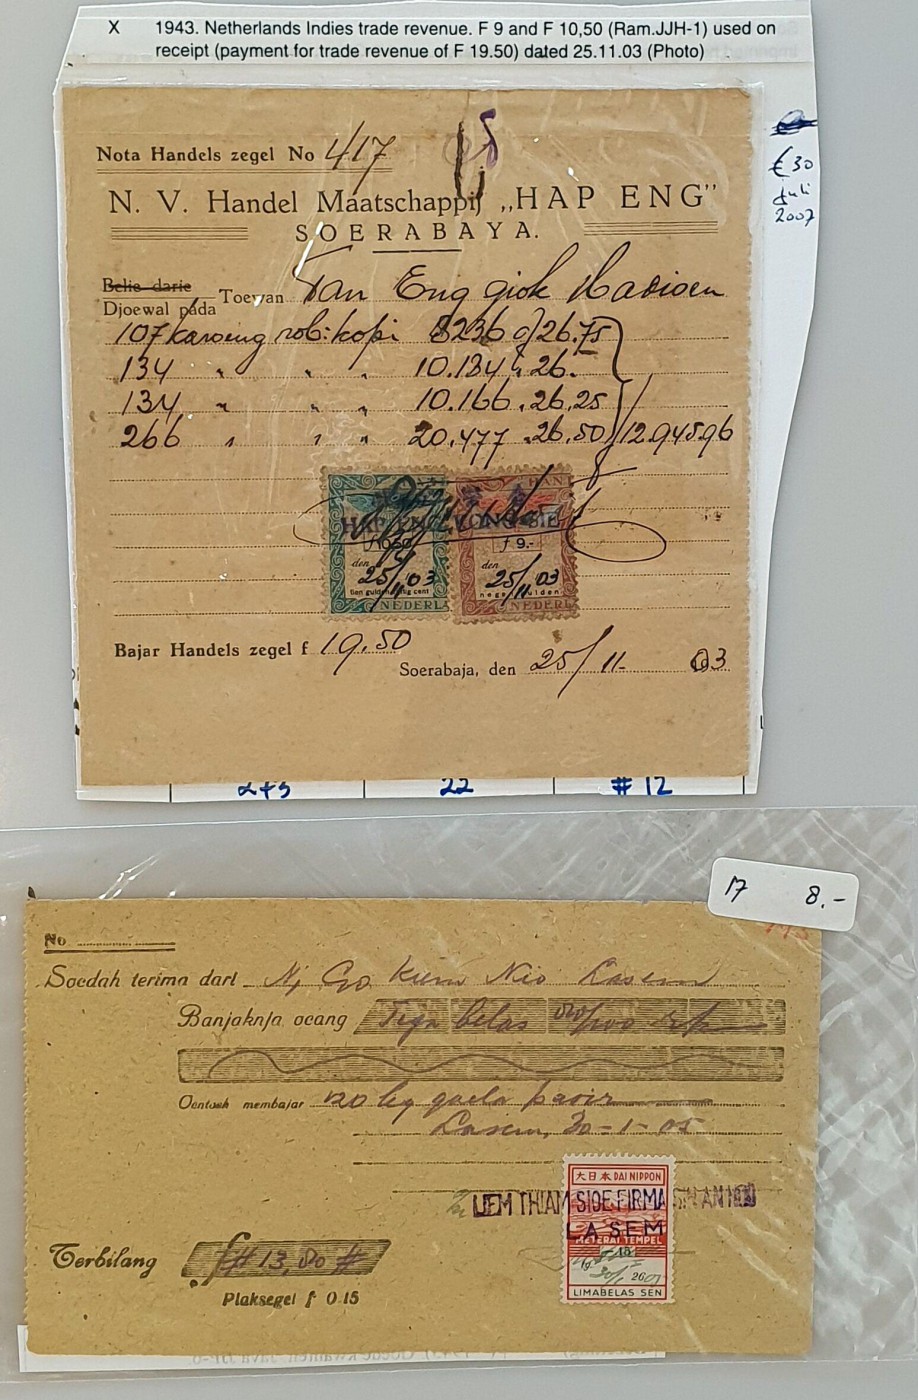 X 1943. Netherlands Indies trade revenue. F 9 and F 10,50 (Ram.JJH-1) used on
receipt (payment for trade revenue of F 19.50) dated 25.11.03 (Photo)
€30
juli
2007
Nota Handels zegel No 417
N. V. Handel Maatschappij „HAP ENG”
SOERABAYA.
Belie darie
Djoewal pada Toewan Tan Eng giok
107 karoeng rob: kopi 8236 26.75
134 " " " 10.184 " 26.-
134 " " " 10.166 " 26.25
266 " " " 20.477 " 26.50 12.945.96
HAN
HAP ENG KONGSIE
f 10.50 f 9.-
den den
25/11 '03 25/11 '03
tien gulden vijftig cent negen gulden
NEDERLA NEDERLA
Bajar Handels zegel f 19.50
Soerabaja, den 25/11. 03
2+3 22 # 12
17 8.-
No
Soedah terima dari Nj Go Kiem Nio Lasem
Banjaknja oeang Tiga belas
Oentoek membajar 120 kg goela pasir
Lasem, 30-1-05
大日本 DAI NIPPON
LIEM THIAM SIOE FIRMA
LASEM
METERAI TEMPEL
15
30/1 2605
LIMABELAS SEN
Terbilang f # 13,80 #
Plaksegel f 0.15